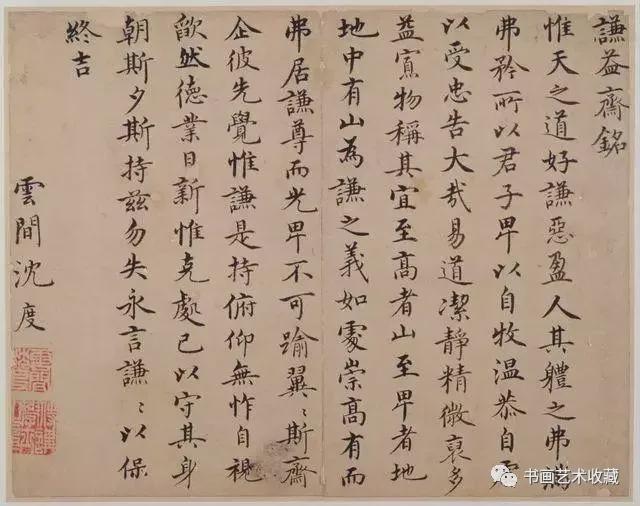 謙益齋銘
惟天之道好謙惡盈人其軆之弗滿
弗矜所以君子卑以自牧温恭自虛
以受忠告大哉易道潔靜精微裒多
益寡物稱其宜至髙者山至卑者地
地中有山為謙之義如處崇髙有而
弗居謙尊而光卑不可踰翼〻斯齋
企彼先覺惟謙是持俯仰無怍自視
歉然德業日新惟克處已以守其身
朝斯夕斯持兹勿失永言謙〻以保
終吉
雲間沈度
书画艺术收藏